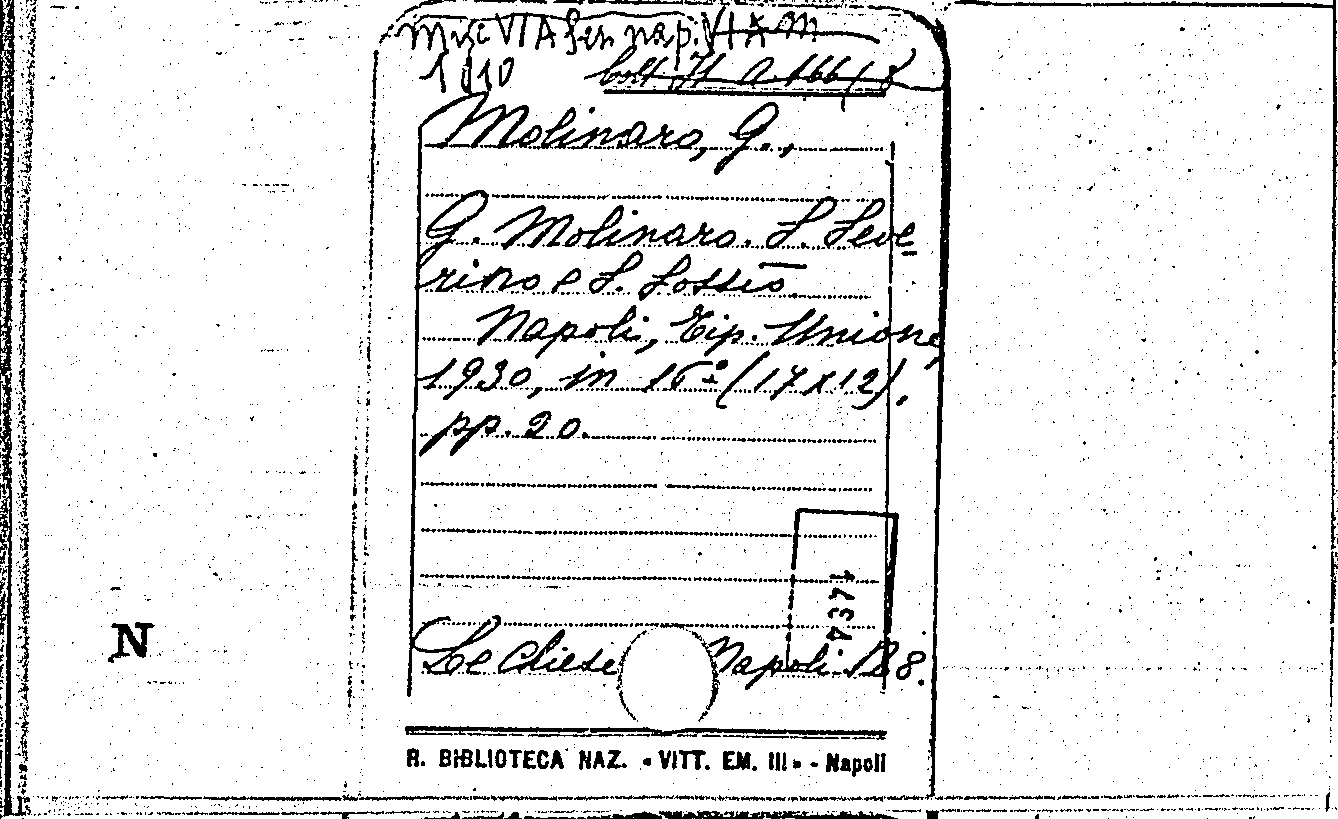 Misc VIA Ser nap. VIA M
1010 Coll. It n. 166/8
Molinaro, G.,
G. Molinaro. S. Seve
rino e S. Sossio.
Napoli, Tip. Unione,
1930, in 16º (17x12).
pp. 20.
7371
Le Chiese Napoli N 8.
N
R. BIBLIOTECA NAZ. « VITT. EM. III » - Napoli